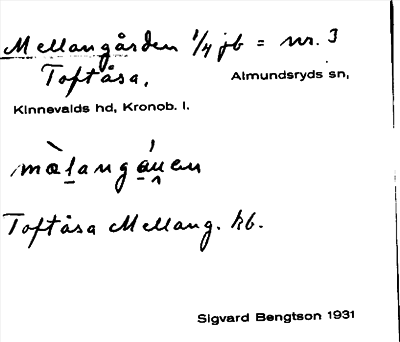 Mellangården 1/4 jb = nr. 3
Toftåsa.
Almundsryds sn,
Kinnevalds hd, Kronob. l.
Toftåsa Mellang. kb.
Sigvard Bengtson 1931